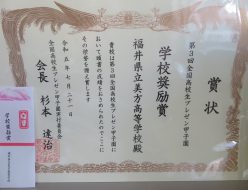 賞状
第3回全国高校生プレゼン甲子園
学校奨励賞
福井県立美方高等学校殿
貴校は第3回全国高校生プレゼン甲子園に
おいて頭書の成績をおさめられたのでここに
その栄誉を称え賞します
令和五年七月二十一日
全国高校生プレゼン甲子園実行委員会
会長 杉本達治
学校奨励賞